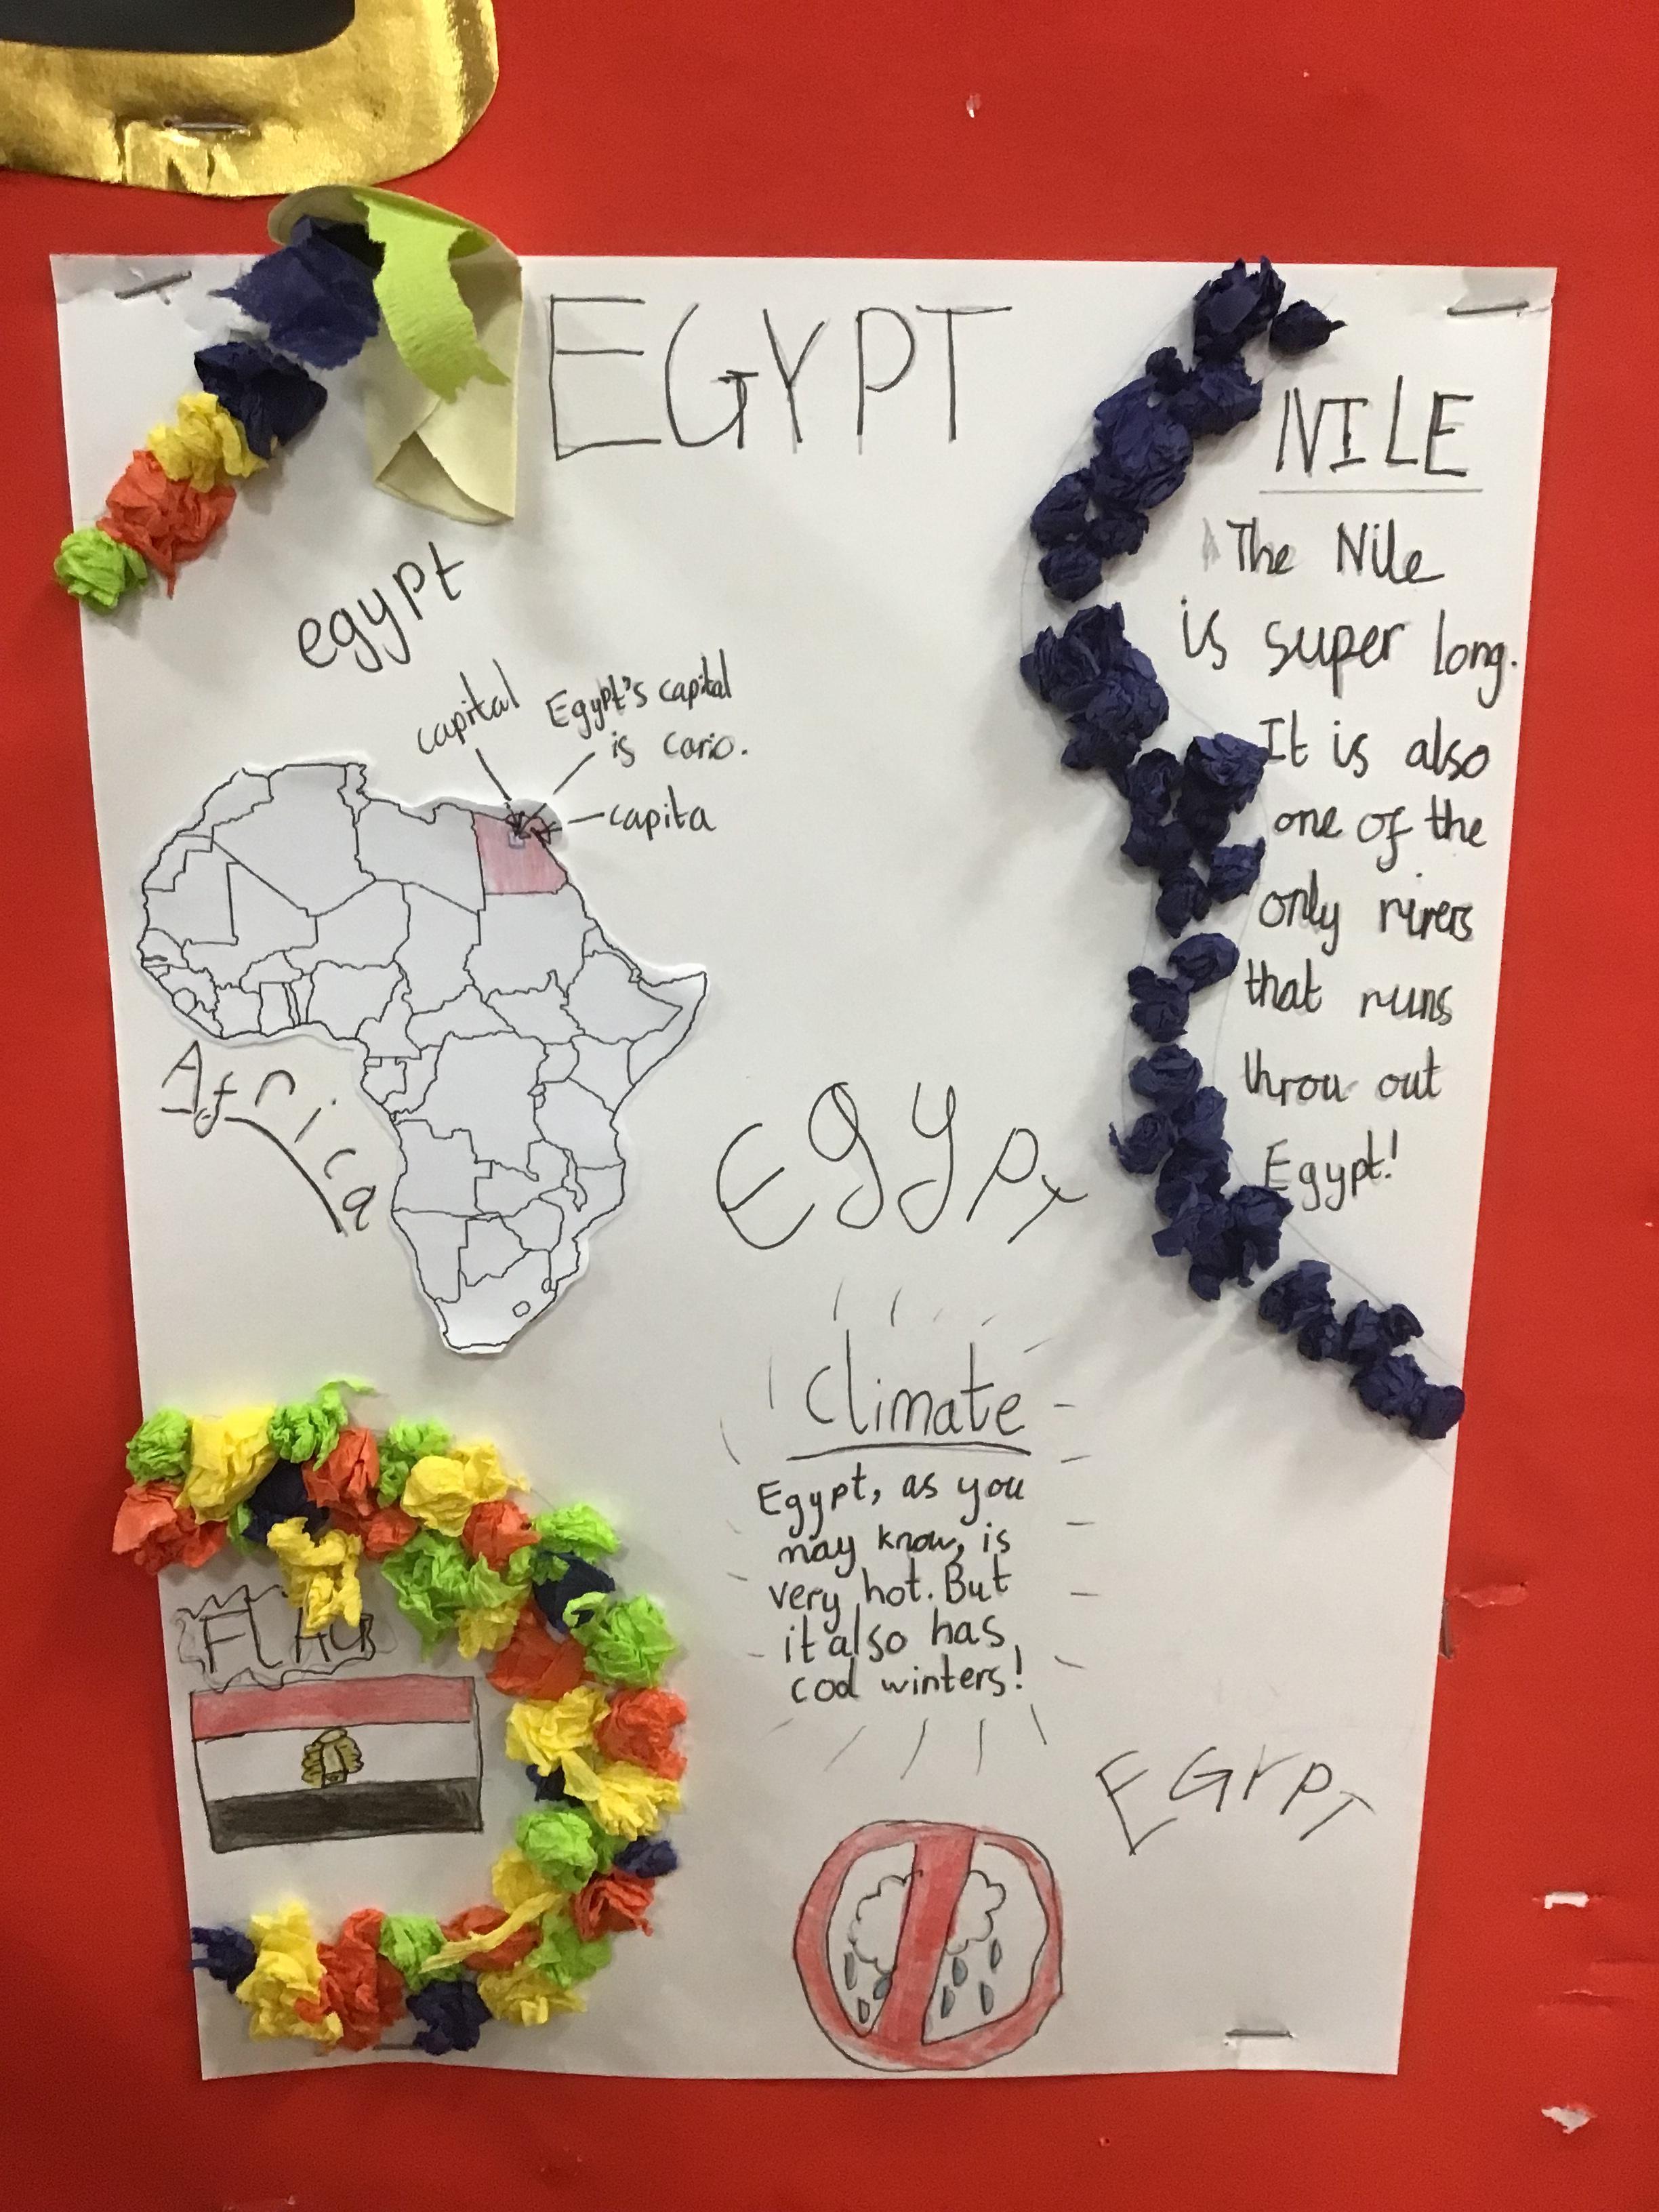 EGYPT
NILE
The Nile
is super long.
It is also
one of the
only rivers
that runs
throu out
Egypt!
egypt
capital
Egypt's capital
is cario.
capita
Africa
Egypt
Climate
Egypt, as you
may know, is
very hot. But
it also has
cool winters!
FLAG
EGYPT